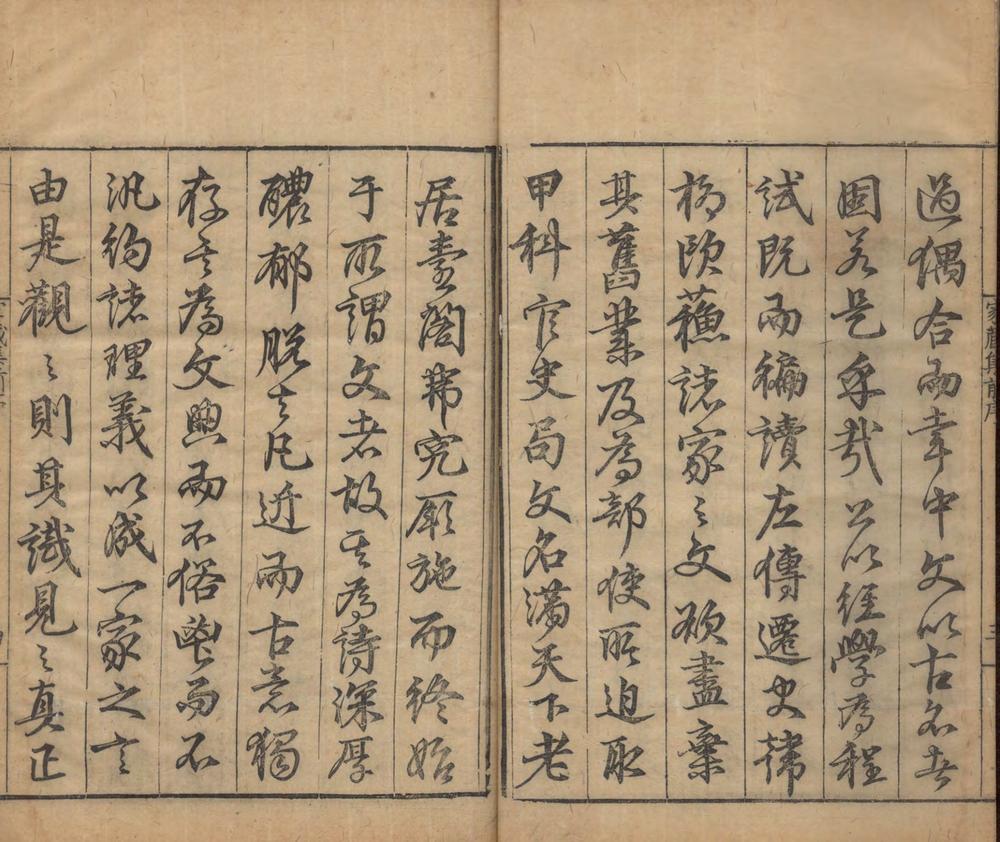 過偶合而幸中文以古名者
固若是乎哉公以經學為程
試既而徧讀左傳遷史韓
柳歐蘇諸家之文欲盡棄
其舊業及為部使所迫取
甲科官史局文名滿天下老
居臺閣弗究厥施而終始
于所謂文者故其為詩深厚
醲郁脫去凡近而古意獨
存其為文典而不俗鬯而不
汎約諸理義以成一家之言
由是觀之則其識見之真正
家藏集前序